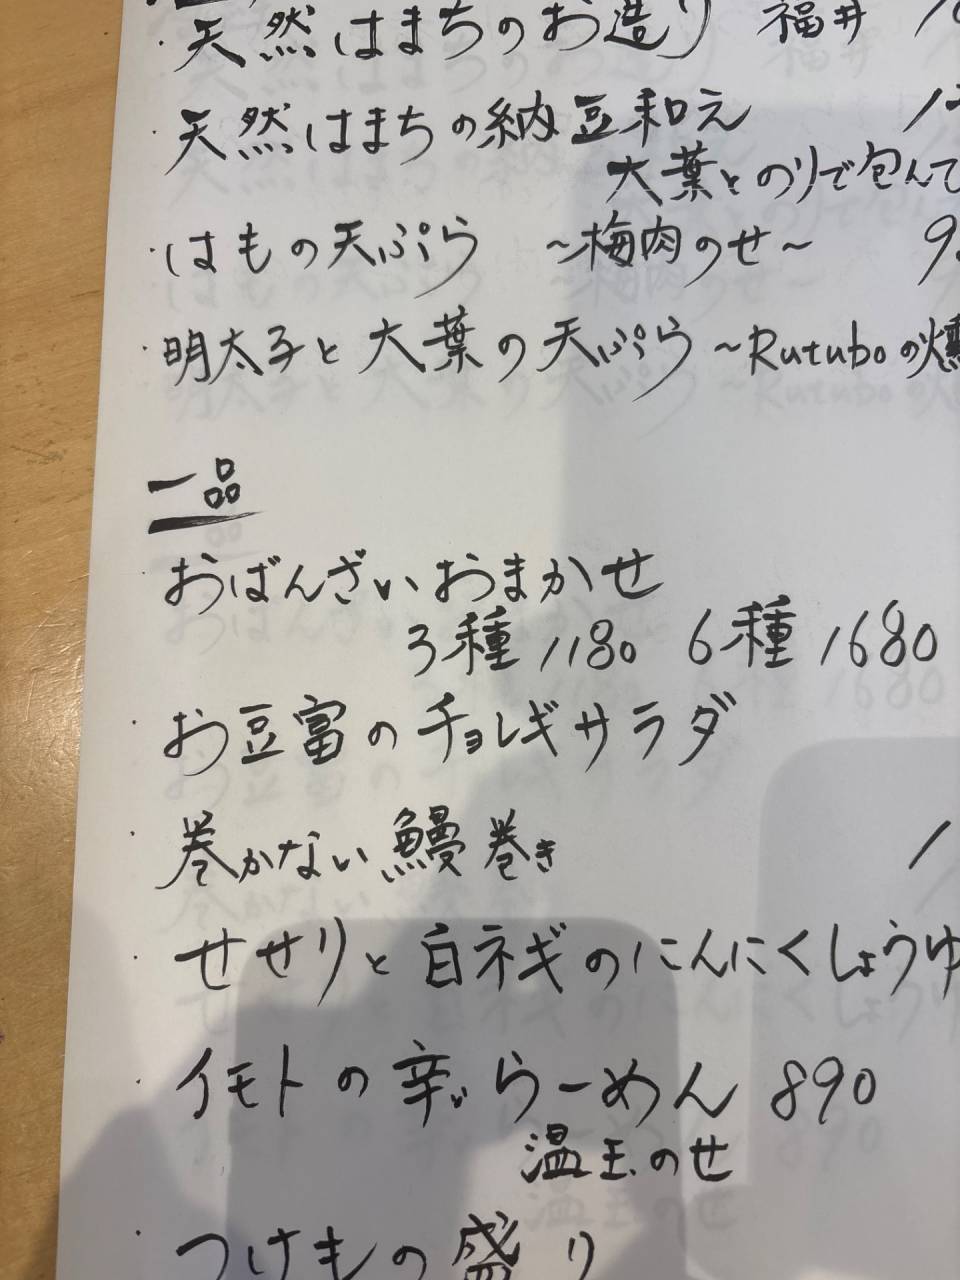 ・天然はまちのお造り 福井
・天然はまちの納豆和え
大葉とのりで包んで
・はもの天ぷら ～梅肉のせ～
・明太子と大葉の天ぷら ～Rutuboの燻
一品
・おばんざいおまかせ
3種 1180 6種 1680
・お豆富のチョレギサラダ
・巻かない鰻巻き
・せせりと白ネギのにんにくしょうゆ
・イモトの辛いらーめん 890
温玉のせ
・つけもの盛り